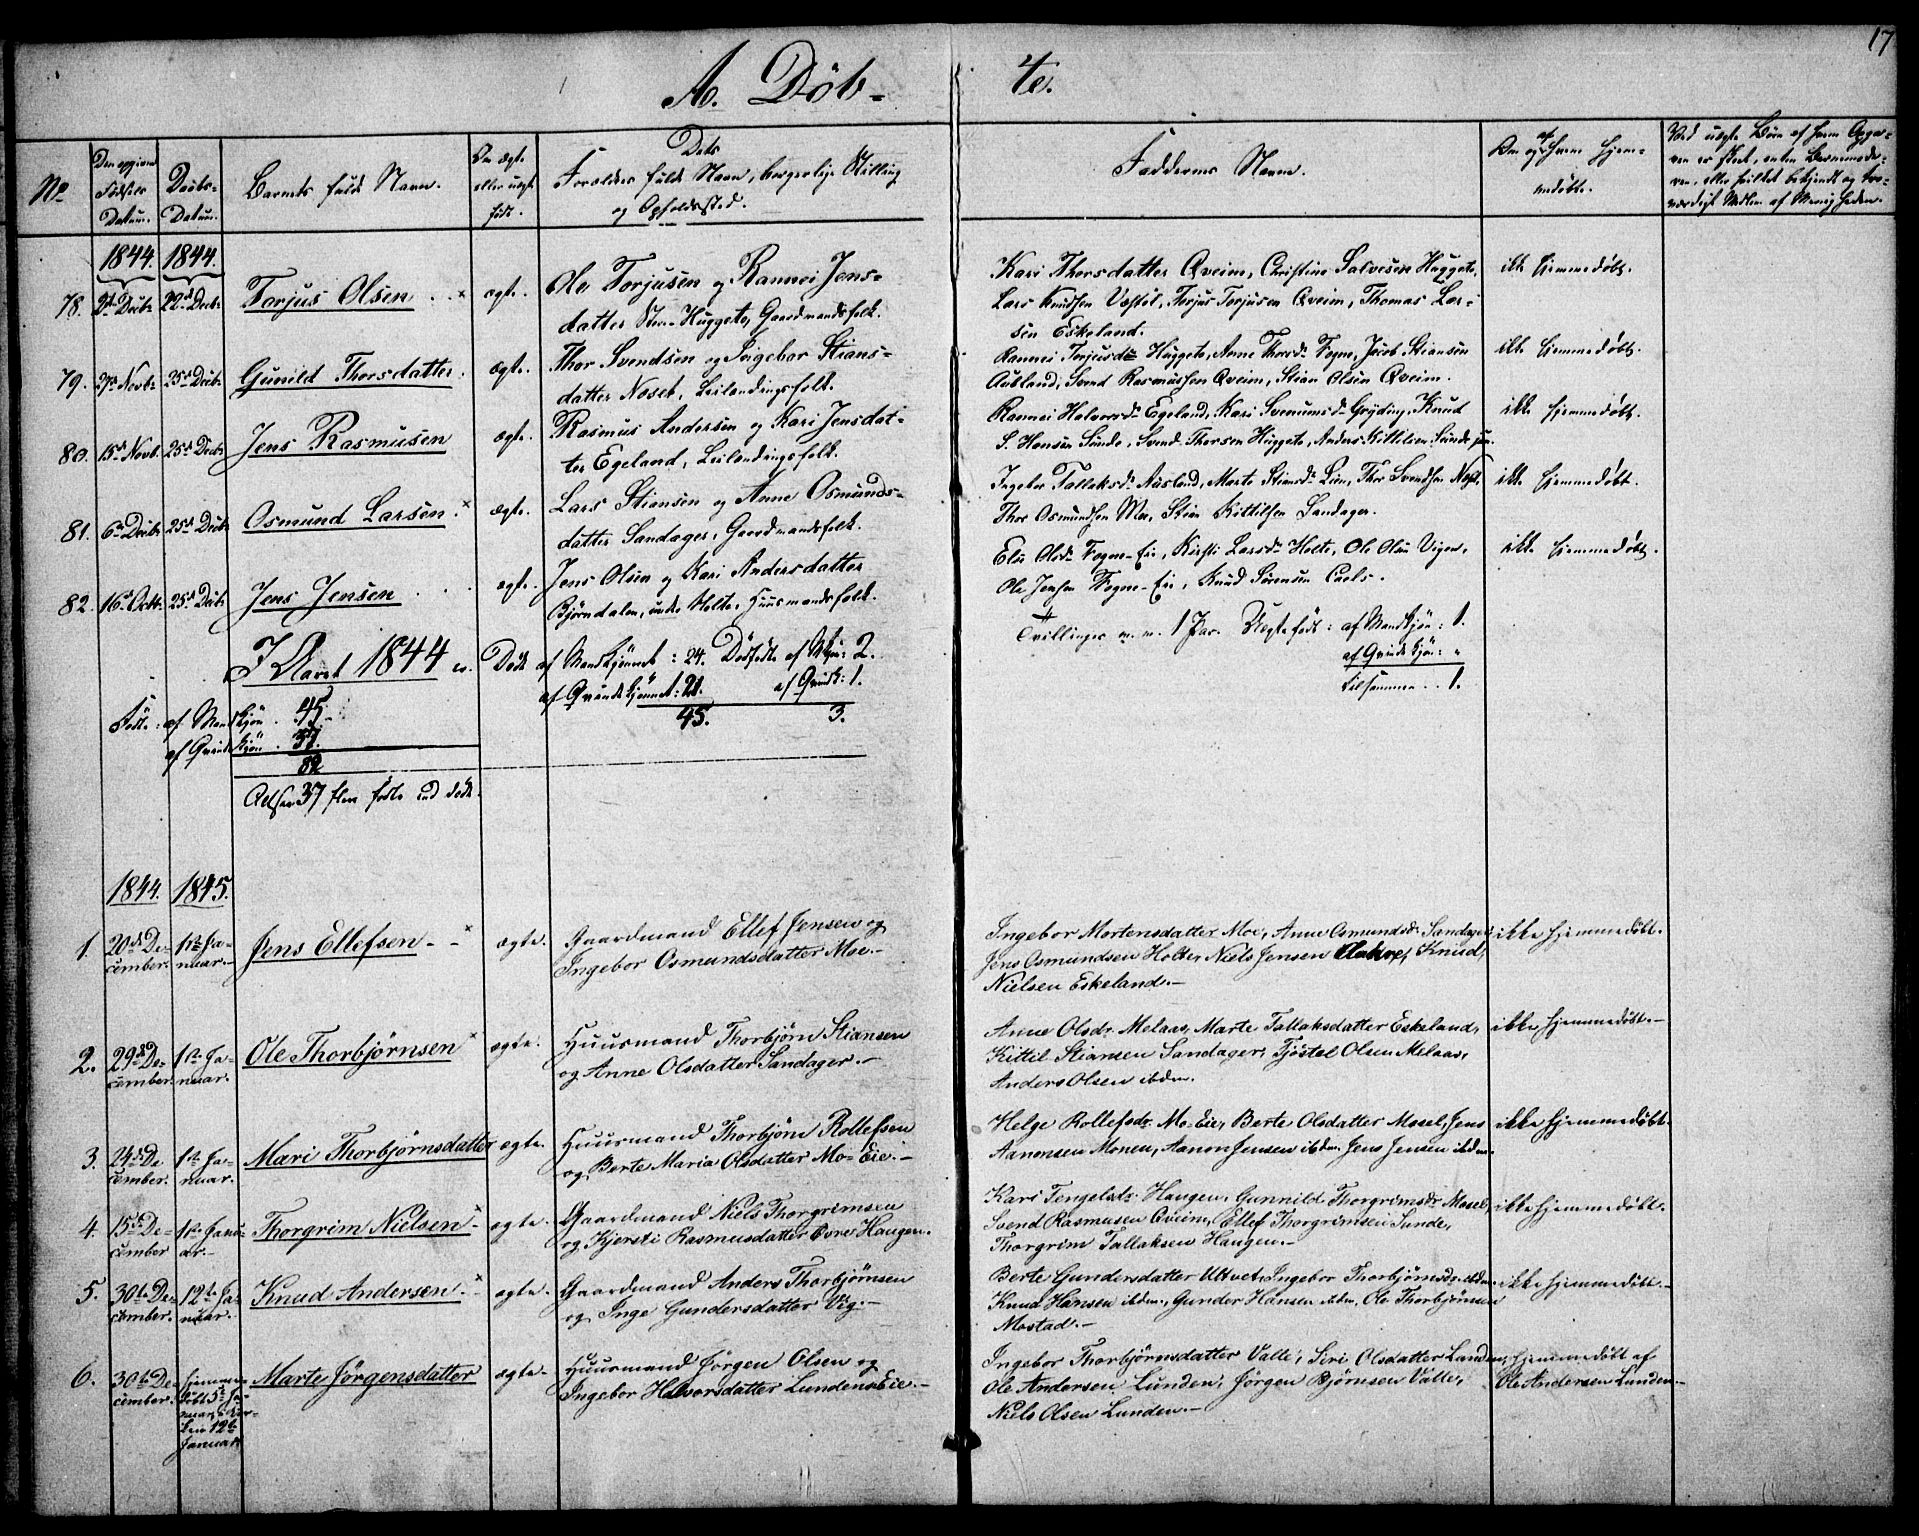 17
A. Döb- te.
No
Den opgivne Fødsels Datum.
Daabs-Datum.
Barnets fulde Navn.
Om ægte eller uægte født.
Dets Forældres fulde Navn, borgerlige Stilling og Opholdssted.
Faddernes Navn.
Om og af hvem hjemmedøbt.
Ved uægte Børn af hvem Opgaven er skeet, enten Barnemoderen, eller hvilket bekjendt og troværdigt Medlem af Menigheden.
1844. 1844.
78. 2den Decbr 22de Decbr Torjus Olsen ægte. Ole Torjusen og Rannei Jens-
datter Huggeto, Gaardmandsfolk.
Kari Thorsdatter Qveim, Christine Salvesen Huggeto,
Lars Knudsen Væstøl, Torjus Torjusen Qveim, Thomas Lar-
sen Eskeland.
ikke hjemmedøbt.
79. 27de Novbr 25de Decbr Gunild Thorsdatter. ægte. Thor Svendsen og Ingebor Stians-
datter Noset, Leilændingsfolk.
Rannei Torjusdr Huggeto, Anne Thorsdr Fogne, Jacob Stiansen
Aabland, Svend Rasmussen Qveim, Stian Olsen Qveim.
ikke hjemmedøbt.
80. 15de Novb. 25de Decbr Jens Rasmusen ægte. Rasmus Andersen og Kari Jensdat-
ter Egeland, Leilændingsfolk.
Rannei Halvorsdr Egeland, Kari Svenumsdr Gryting, Knud
S. Hansen Sunde, Svend Thorsen Huggeto, Anders Kittilsen Sunde
ikke hjemmedøbt.
81. 6te Decbr 25de Decbr Osmund Larsen. ægte. Lars Stiansen og Anne Osmunds-
datter Sandager, Gaardmandsfolk.
Ingebor Tallaksdr Aasland, Marte Stiansdr Lien, Thor Svendsen Noset,
Thor Osmundsen Moe, Stian Kittilsen Sandager.
ikke hjemmedøbt.
82. 16de Octb. 25de Decbr Jens Jensen ægte. Jens Olsen og Kari Andersdatter
Bjørndalen, under Holte, Huusmandsfolk.
Else Olsdr Fogne-Eie, Kirsti Larsdr Holte, Ole Olsen Vigen,
Ole Jensen Fogne-Eie, Knud Sørensen Caels.
ikke hjemmedøbt.
I Aaret 1844 er Døde af Mandkjønnet: 24. Dødfødte af Mkjøn: 2.
af Qvindekjønnet: 21. af Qvindk: 1.
45. 3.
Tvillinger m. m. 1 Par. Uægtefødt: af Mandkjøn: 1.
af Qvindekjøn: "
tilsammen .. 1.
Født: af Mandkjøn. 45
af Qvindekjøn. 37.
82
Altsaa 37 flere fødte end døde.
1844. 1845.
1. 20de De-
cember. 1ste Ja-
nuar. Jens Ellefsen ægte. Gaardmand Ellef Jensen og
Ingebor Osmundsdatter Moe.
Ingebor Mortensdatter Moe, Anne Osmundsdr Sandager,
Jens Osmundsen Holte, Niels Jensen Aakre, Knud
Nielsen Eskeland.
ikke hjemmedøbt.
2. 29de De-
cember. 1ste Ja-
nuar. Ole Thorbjørnsen ægte. Huusmand Thorbjörn Stiansen
og Anne Olsdatter Sandager.
Anne Olsdr Melaas, Marte Tallaksdatter Eskeland,
Kittil Stiansen Sandager, Tjöstel Olsen Melaas,
Anders Olsen ibdm.
ikke hjemmedøbt.
3. 24de De-
cember. 1ste Ja-
nuar. Mari Thorbjørnsdatter ægte. Huusmand Thorbjörn Rollefsen
og Berte Maria Olsdatter Mo-Eie.
Helge Rollefsdr Mo-Eie, Berte Olsdatter Mosel, Jens
Aanonsen Monen, Aanon Jensen ibdm. Jens Jensen ibdm.
ikke hjemmedøbt.
4. 15de De-
cember 1ste Janu-
ar. Thorgrim Nielsen ægte. Gaardmand Niels Thorgrimsen
og Kjersti Rasmusdatter Evne Haugen.
Kari Tengelsdr Haugen, Gunnild Thorgrimsdr Mosel,
Svend Rasmusen Qveim, Ellef Thorgrimsen Sunde,
Thorgrim Tallaksen Haugen.
ikke hjemmedøbt.
5. 30te De-
cember. 12te Ja-
nuar. Knud Andersen ægte. Gaardmand Anders Thorbjørnsen
og Inge Gundersdatter Vig.
Berte Gundersdatter Ultvet, Ingebor Thorbjørnsdr ibdm.
Knud Hansen ibdm., Gunder Hansen ibdm., Ole Thorbjørnsen
Mostad.
ikke hjemmedöbt.
6. 30te De-
cember. hjemme-
døbt 5te Ja-
nuar, i Kir-
ken 12te
Januar Marte Jörgensdatter ægte. Huusmand Jörgen Olsen og
Ingebor Halvorsdatter Lundens Eie.
Ingebor Thorbjørnsdatter Valle, Siri Olsdatter Lunden,
Ole Andersen Lunden, Jörgen Bjørnsen Valle,
Niels Olsen Lunden.
hjemmedøbt af
Ole Andersen Lunden.